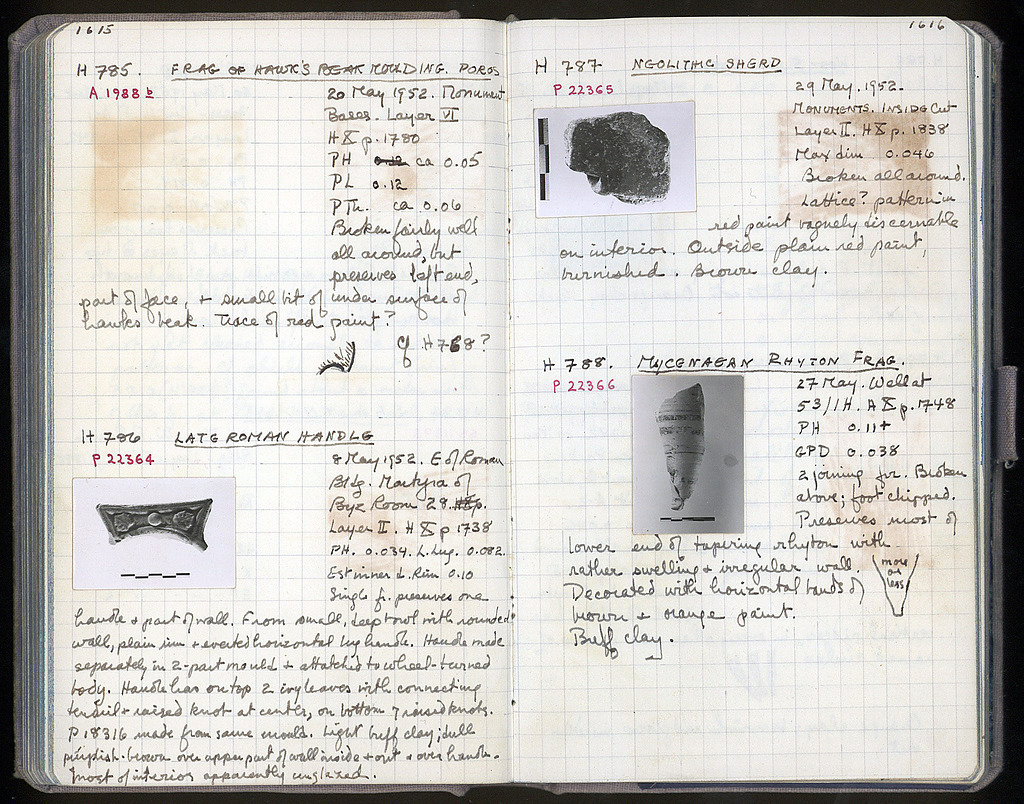 1615
H 785. FRAG OF HAWK'S BEAK MOULDING. POROS
A 1988 b
20 May 1952. Monument
Bases. Layer VI
H X p. 1780
PH ca 0.05
PL 0.12
P Th. ca 0.06
Broken fairly well
all around, but
preserves left end,
part of face, + small bit of under surface of
hawks beak. Trace of red paint?
cf H 768?
H 786 LATE ROMAN HANDLE
P 22364
8 May 1952. E of Roman
Bldg. Martyra of
Byz Room 28.
Layer II. H X p 1738
PH. 0.034. L. Lug. 0.082.
Est inner d. Rim 0.10
Single fr. preserves one
handle + part of wall. From small, deep bowl with rounded
wall, plain rim + everted horizontal lug handle. Handle made
separately in 2-part mould + attached to wheel-turned
body. Handle has on top 2 ivy leaves with connecting
tendril + raised knot at center, on bottom 7 raised knots.
P 18316 made from same mould. Light buff clay; dull
purplish-brown over upper part of wall inside + out + over handle.
Most of interior apparently unglazed.
1616
H 787 NEOLITHIC SHERD
P 22365
29 May. 1952.
MONUMENTS. INSIDE Cut
Layer II. H X p. 1838
Max dim 0.046
Broken all around.
Lattice? pattern in
red paint vaguely discernable
on interior. Outside plain red paint,
burnished. Brown clay.
H 788. MYCENAEAN RHYTON FRAG.
P 22366
27 May. Well at
53/1H. A X p. 1748
PH 0.11+
GPD 0.038
2 joining fr. Broken
above; foot chipped.
Preserves most of
lower end of tapering rhyton with
rather swelling + irregular wall.
more
or
less
Decorated with horizontal bands of
brown + orange paint.
Buff clay.